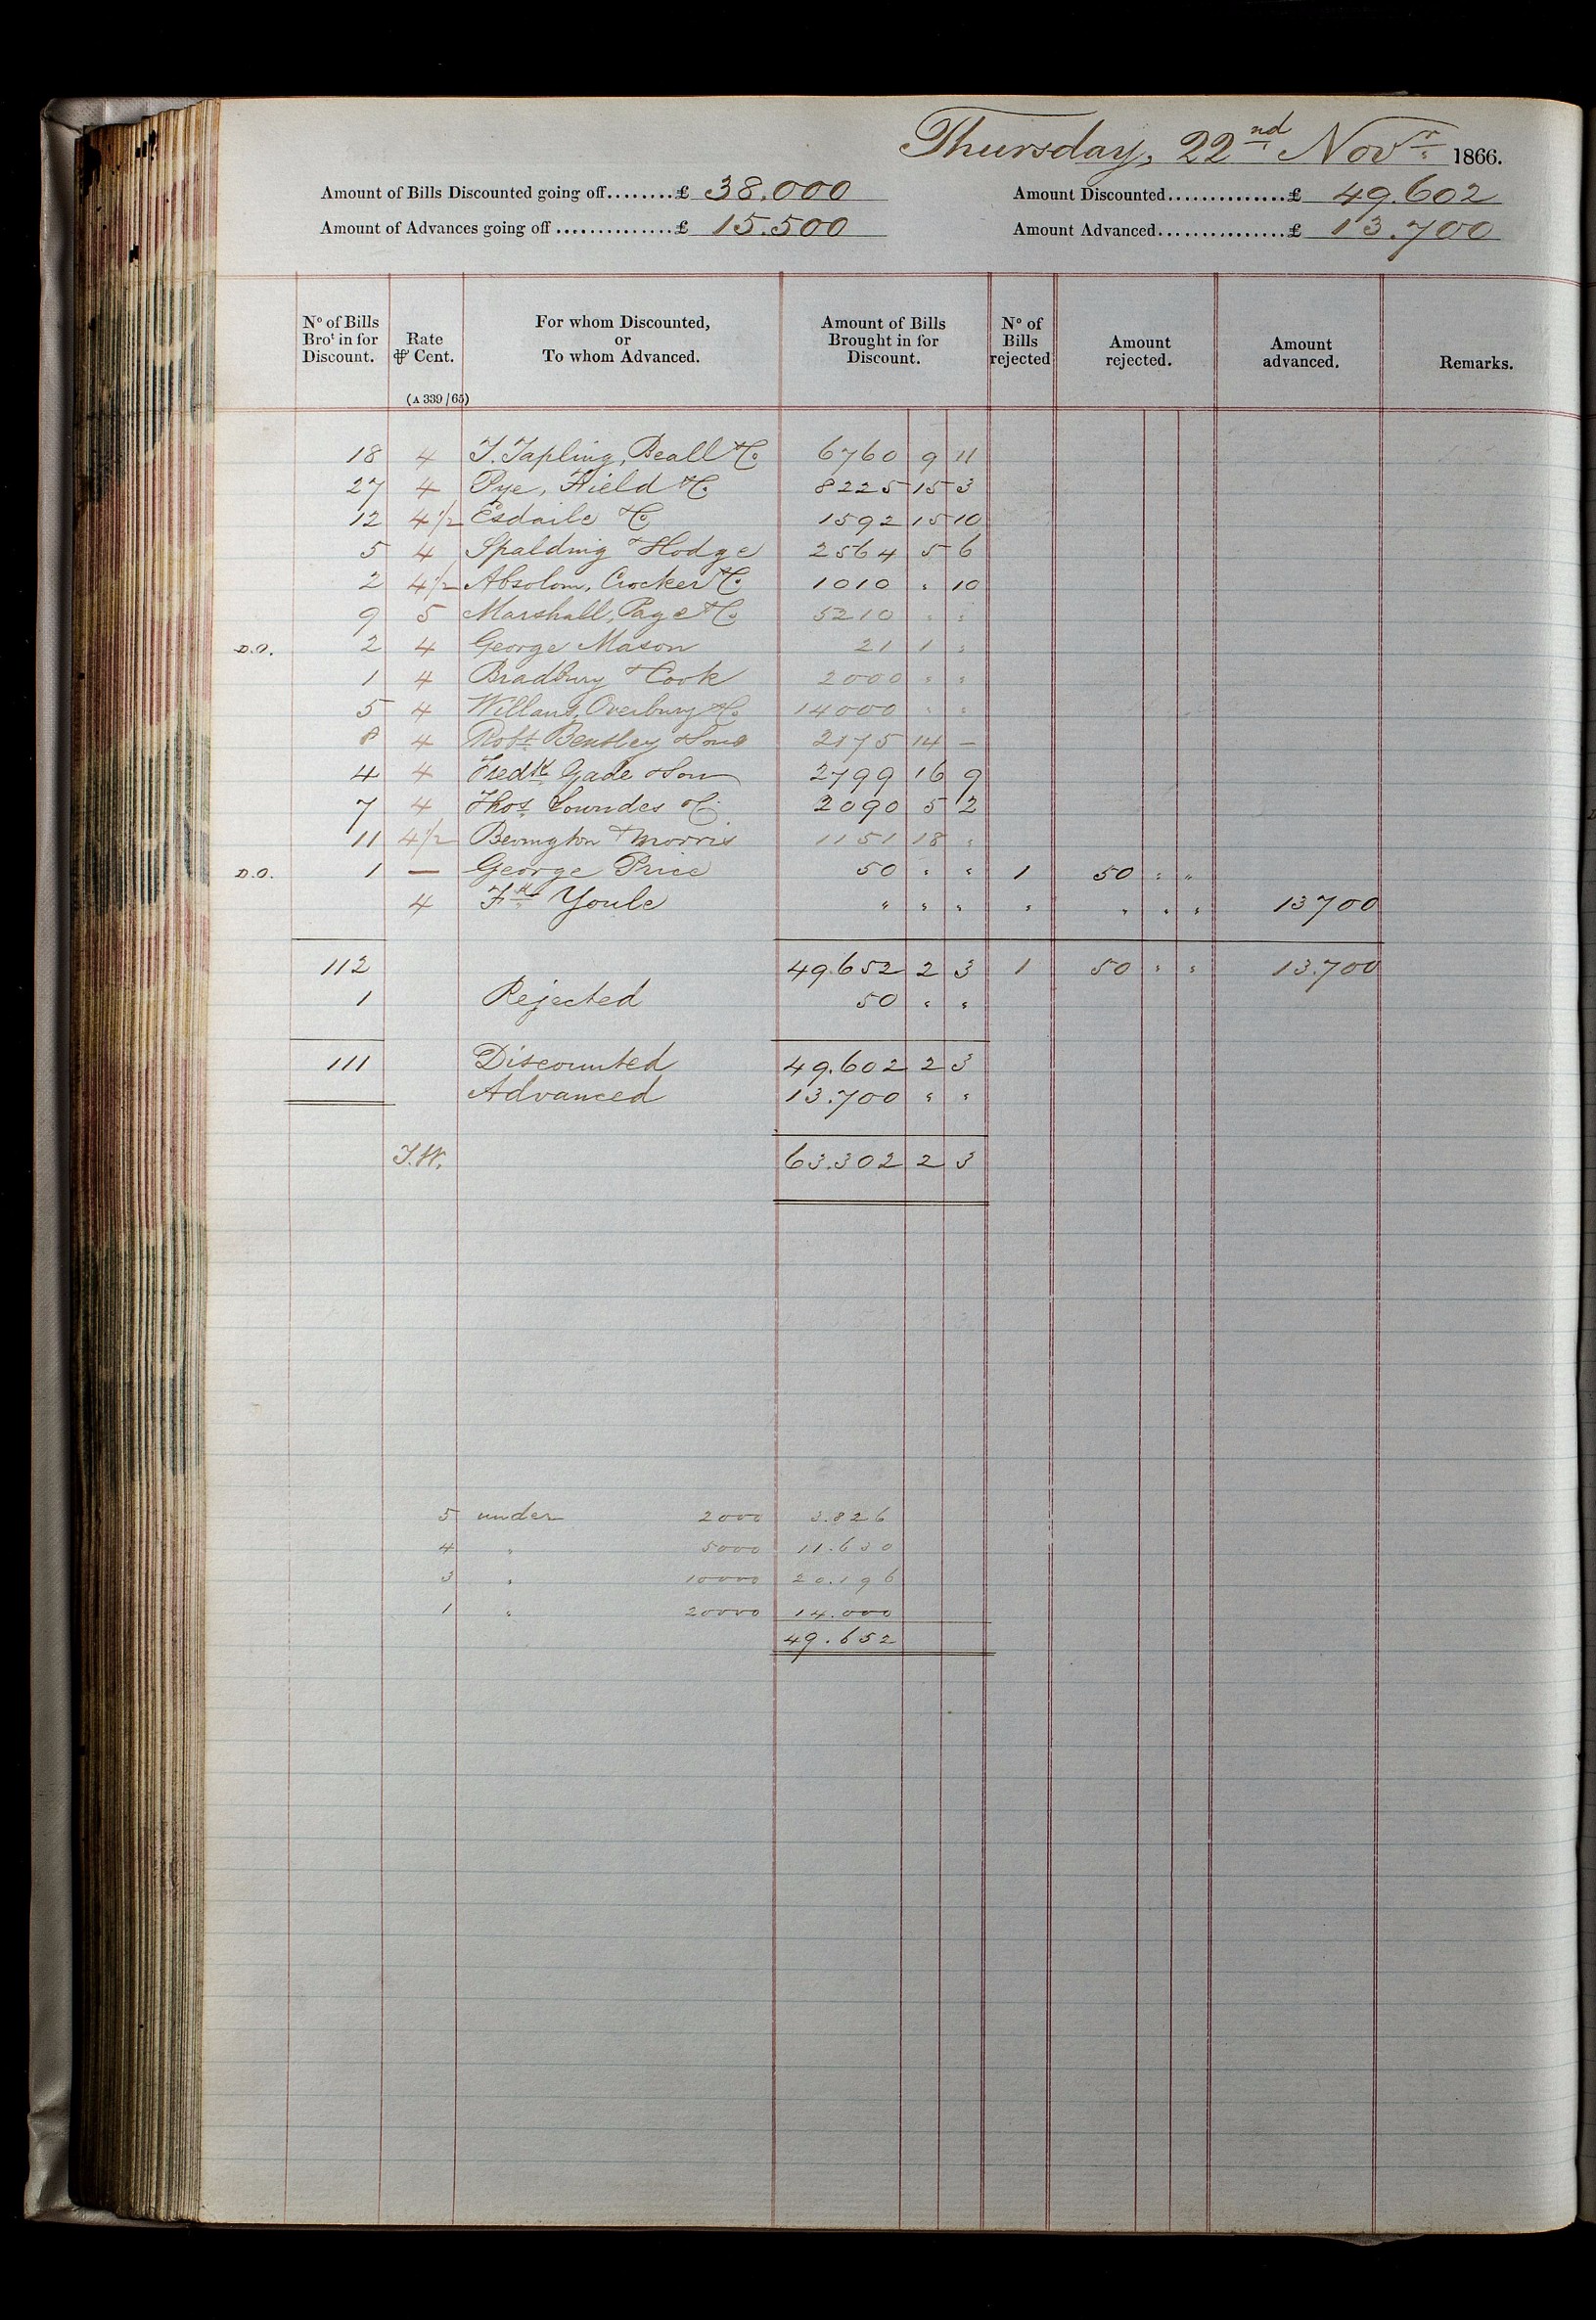 Thursday, 22nd Novr 1866.
Amount of Bills Discounted going off........£ 38.000 Amount Discounted...............£ 49.602
Amount of Advances going off ..............£ 15.500 Amount Advanced................£ 13.700
No of Bills Brot in for Discount. Rate ⅌ Cent. (A 339/65) For whom Discounted, or To whom Advanced. Amount of Bills Brought in for Discount. No of Bills rejected Amount rejected. Amount advanced. Remarks.
18 4 T. Tapling, Beall & Co 6760 9 11
27 4 Pye, Field & Co 8225 15 3
12 4 1/2 Esdaile & Co 1592 15 10
5 4 Spalding & Hodge 2564 5 6
2 4 1/2 Absolom, Crocker & Co 1010 " 10
9 5 Marshall, Page & Co 5210 " "
D.O. 2 4 George Mason 21 1 "
1 4 Bradbury & Cook 2000 " "
5 4 Willans, Overbury & Co 14000 " "
8 4 Robt Bensley & Sons 2175 14 —
4 4 Fredk Gade & Son 2799 16 9
7 4 Thos Lowndes & Co 2090 5 2
11 4 1/2 Bevington & Morris 1151 18 "
D.O. 1 — George Price 50 " " 1 50 " "
4 Fk Youle " " " " " " " 13700
112 49.652 2 3 1 50 " " 13.700
1 Rejected 50 " "
111 Discounted 49.602 2 3
Advanced 13.700 " "
J.W. 63.302 2 3
5 under 2000 3.826
4 " 5000 11.630
3 " 10000 20.196
1 " 20000 14.000
49.652